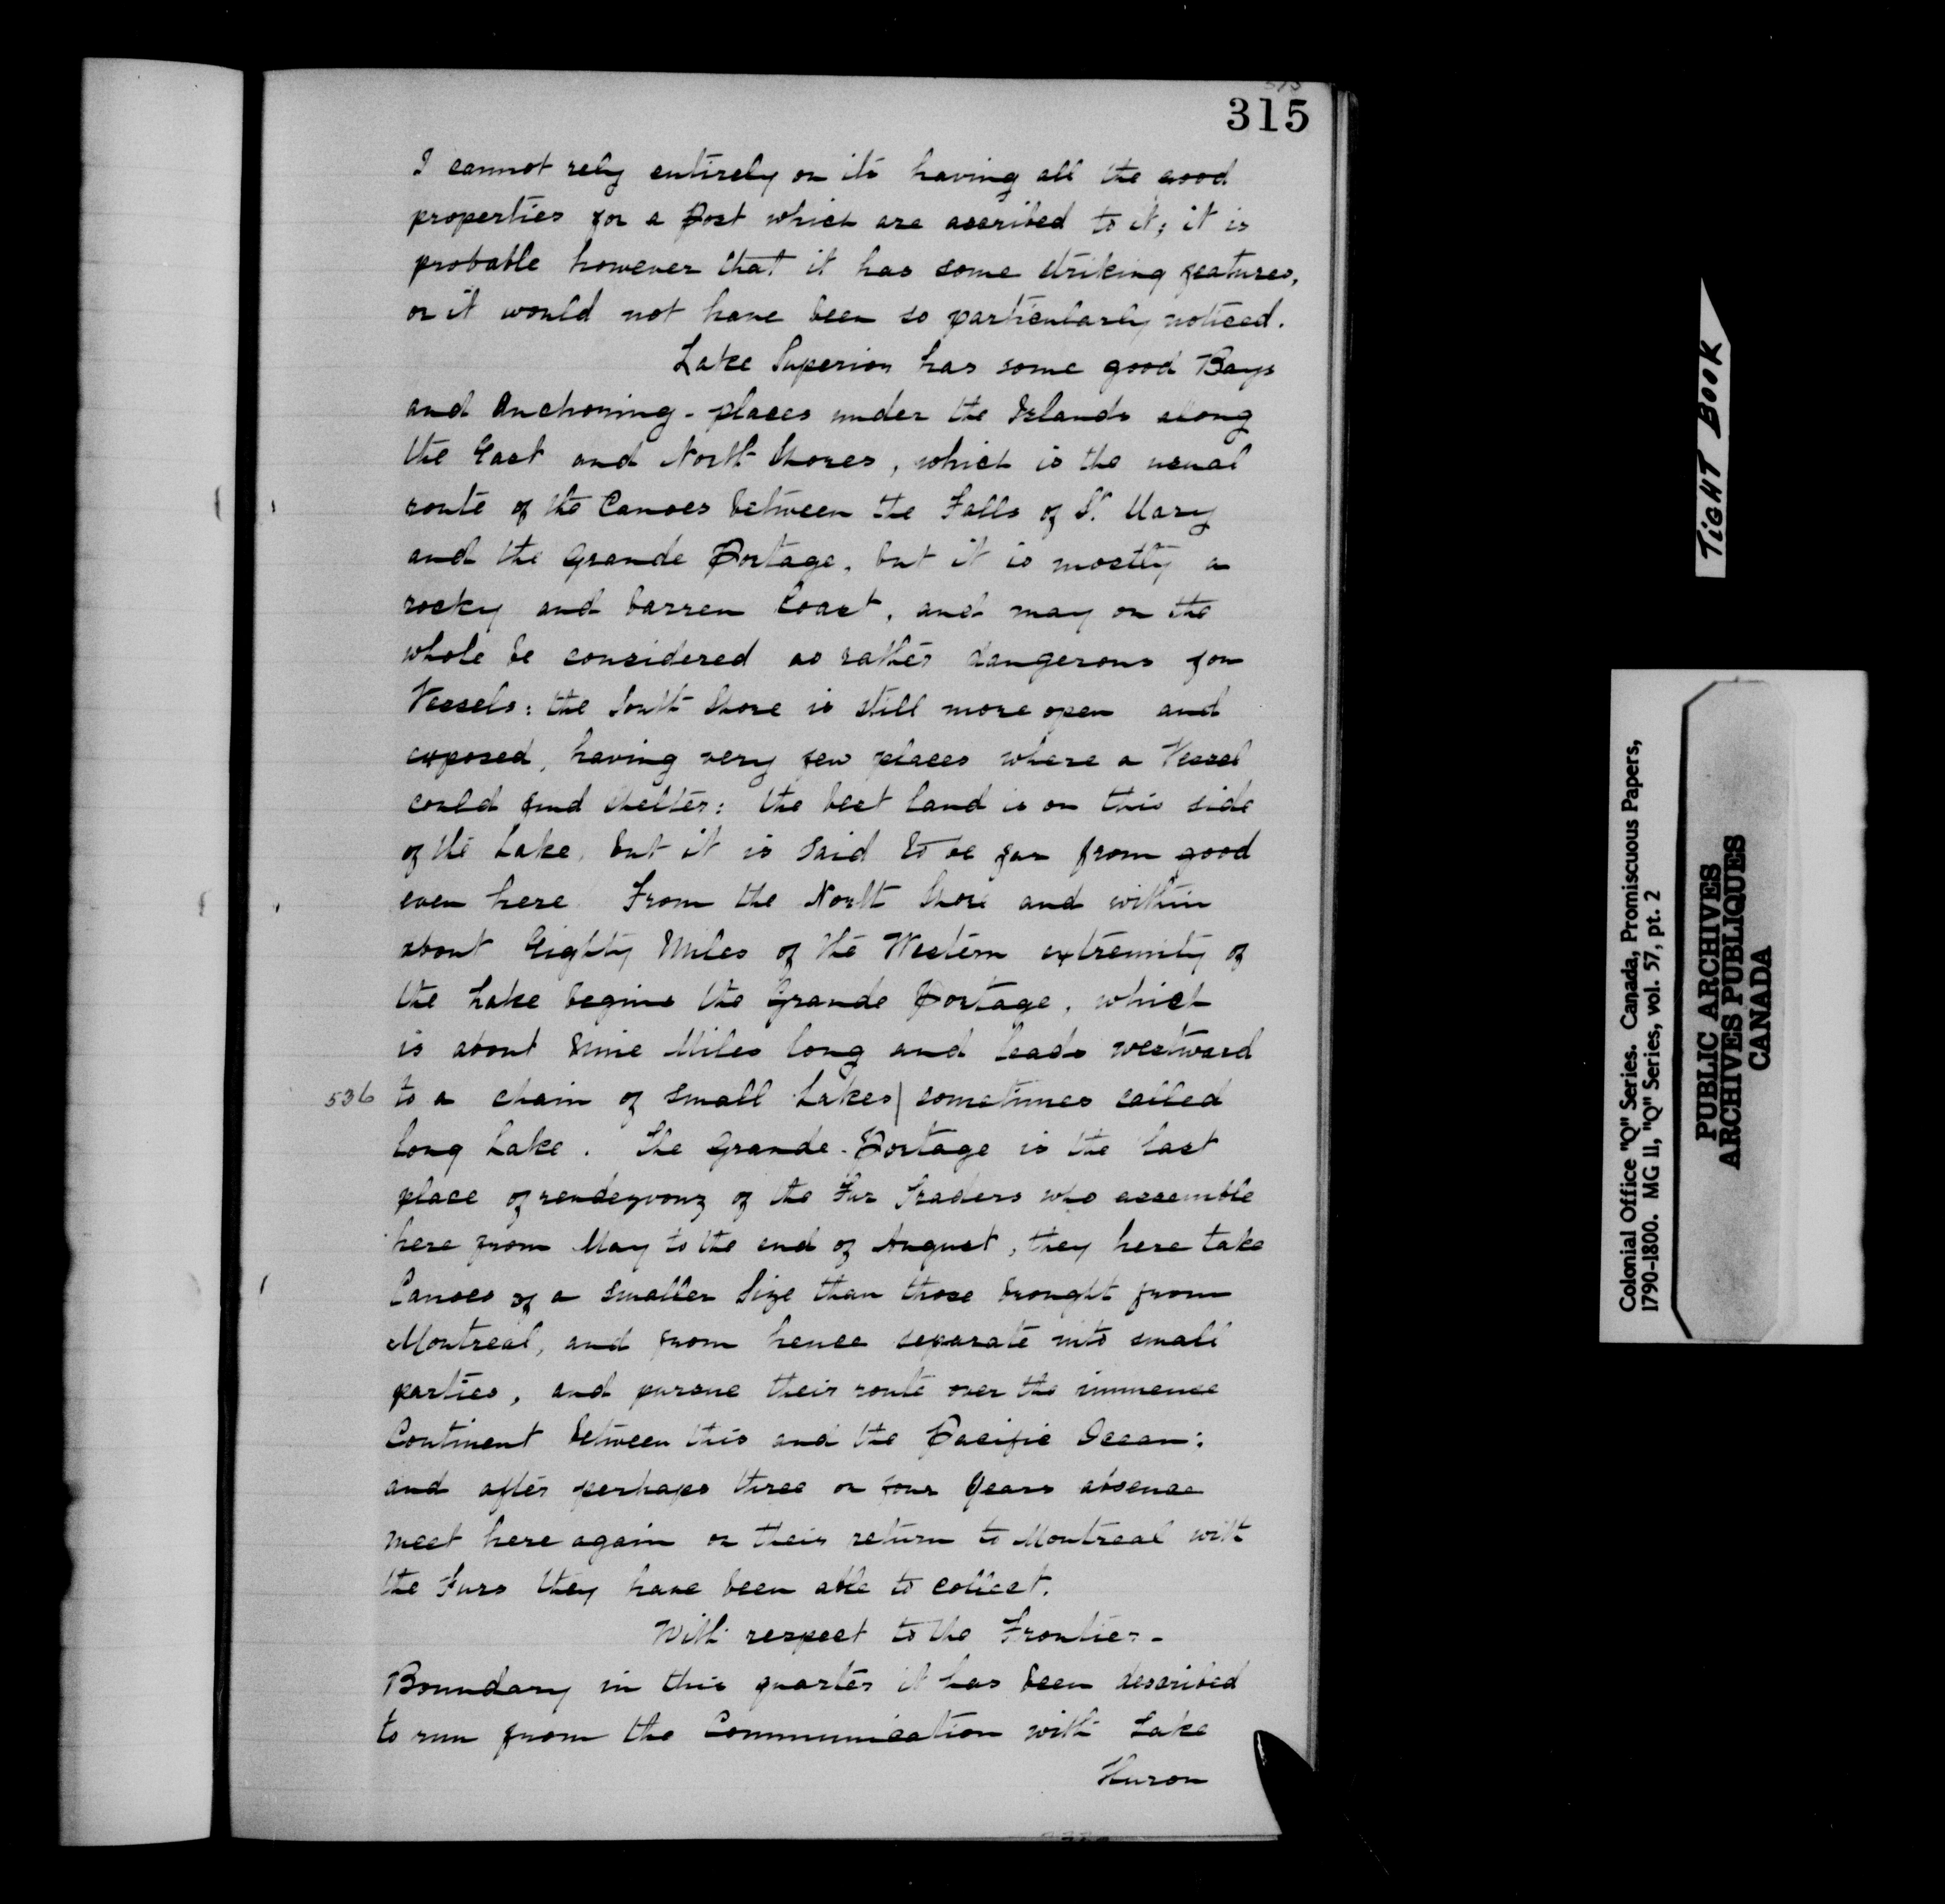 315
I cannot rely entirely on its having all the good
properties for a Post which are ascribed to it; it is
probable however that it has some striking features,
or it would not have been so particularly noticed.
Lake Superior has some good Bays
and Anchoring-places under the Islands along
the East and North Shores, which is the usual
route of the Canoes between the Falls of St. Mary
and the Grande Portage, but it is mostly a
rocky and barren Coast, and may on the
whole be considered as rather dangerous for
Vessels: the South Shore is still more open and
exposed, having very few places where a Vessel
could find Shelter: the best land is on this side
of the Lake, but it is said to be far from good
even here. From the North Shore and within
about Eighty Miles of the Western extremity of
the Lake begins the Grande Portage, which
is about Nine Miles long and leads westward
536 to a chain of small Lakes| sometimes called
long Lake. The Grande-Portage is the last
place of rendezvouz of the Fur Traders who assemble
here from May to the end of August, they here take
Canoes of a smaller Size than those brought from
Montreal, and from hence separate into small
parties, and pursue their route over the immense
Continent between this and the Pacific Ocean:
and after perhaps three or four Years absence
meet here again on their return to Montreal with
the Furs they have been able to collect.
With respect to the Frontier-
Boundary in this quarter it has been described
to run from the Communication with Lake
Huron
TIGHT BOOK
Colonial Office "Q" Series. Canada, Promiscuous Papers,
1790-1800. MG 11, "Q" Series, vol. 57, pt. 2
PUBLIC ARCHIVES
ARCHIVES PUBLIQUES
CANADA